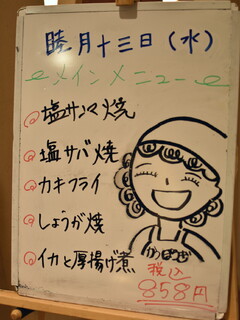 睦月十三日(水)
メインメニュー
塩サンマ焼
塩サバ焼
カキフライ
しょうが焼
イカと厚揚げ煮
税込
858円